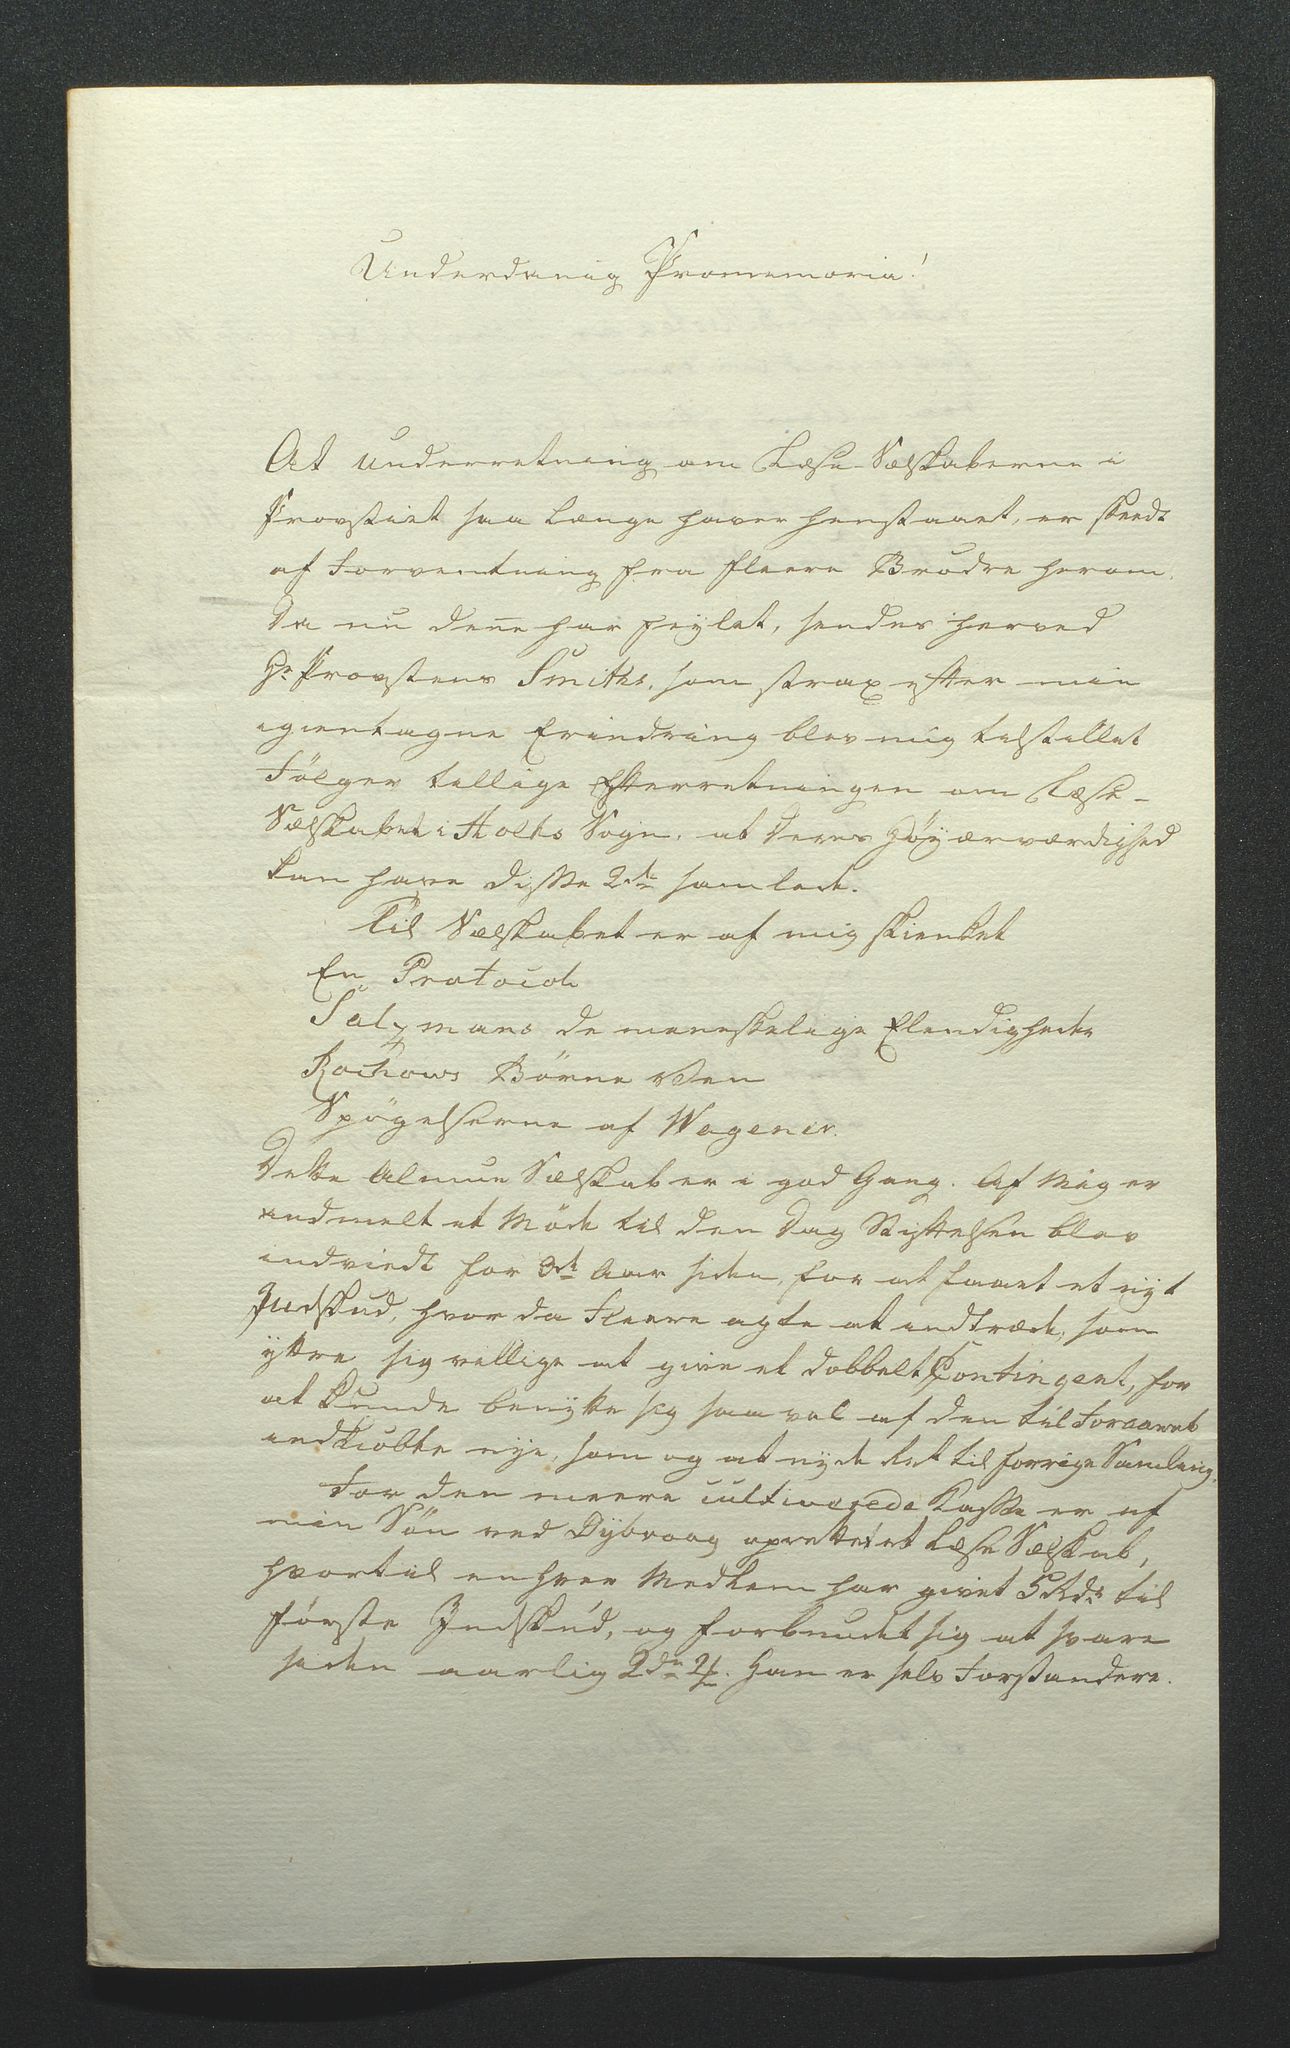 Underdanig Promemoria!
At underretning om Læse-Sælskaberne i
Provstiet saa længe haver henstaaet, er skeedt
af Forventning fra fleere Brødre herom.
Da nu denne har feylet, sendes herved
Hr Provstens Smiths, som strax efter min
igientagne Erindring blev mig tilstillet
Følger tillige Efterretningen om Læse-
Sælskabet i Holts Sogn, at Deres Høyærværdighed
kan have disse 2de samlede.
Til Sælskabet er af mig skienket
En Protocol
Salzmans de menneskelige Elendigheder
Rochows Børne Ven
Spøgelserne af Wagener.
Dette Almue Sælskab er i god Gang. Af Mig er
indmelt et Møde til den Dag Stiftelsen blev
indviedt for 3de Aar siden, for at faaet et nyt
Indskud, hvor da Fleere agte at indtræde, som
yttre sig villige at give et dobbelt Contingent, for
at kunde benytte sig saa vel af den til Foraaret
indkiøbte nye, som og at nyde det til forrige Samling.
For den meere cultiverede Classe er af
min Søn ved Dybvaag oprettet et Læse Sælskab,
hvortil enhver Medlem har givet 5 Rdr til
første Indskud, og forbundet sig at svare
siden aarlig 2de Han er selv Forstandere.